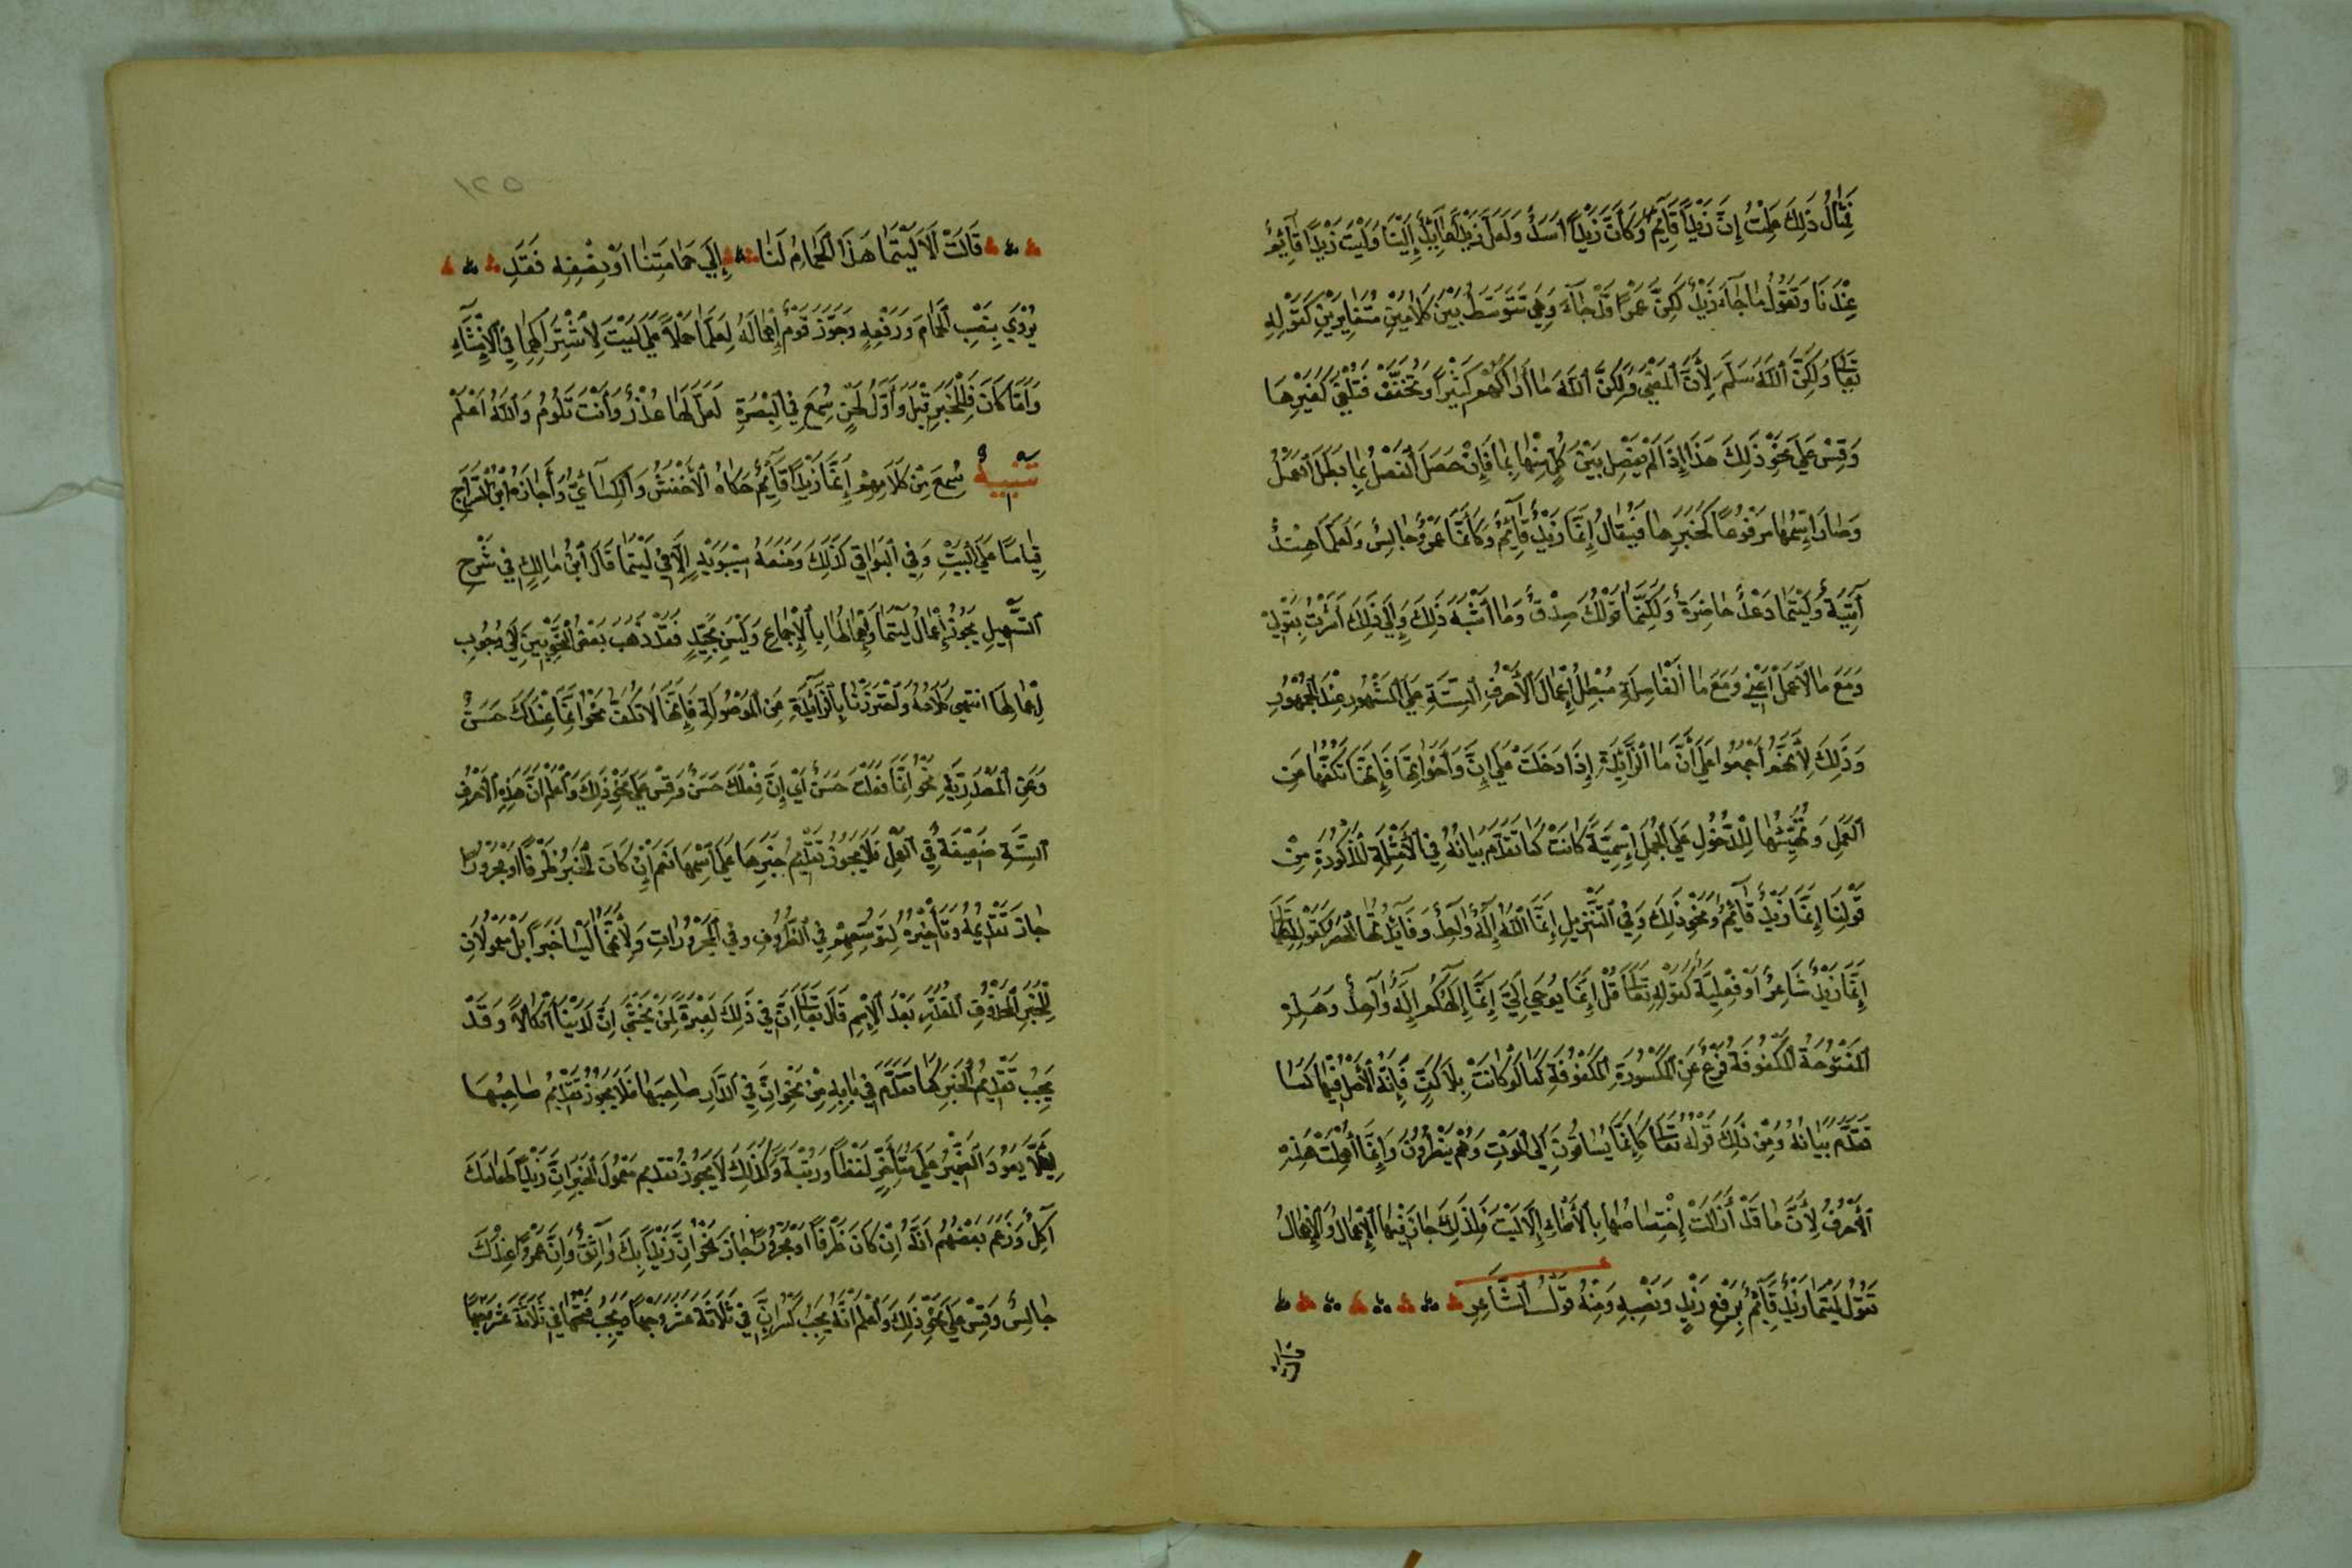 فَمِثَالُ ذَلِكَ عَلِمْتُ إِنَّ زَيْدًا قَائِمٌ وَكَأَنَّ زَيْدًا أَسَدٌ وَلَعَلَّ زَيْدًا إِلَيْنَا وَلَيْتَ زَيْدًا قَائِمٌ
عِنْدَنَا وَتَقُولُ مَا جَاءَ زَيْدٌ لَكِنَّ عَمْرًا قَدْ جَاءَ وَهِيَ تَتَوَسَّطُ بَيْنَ كَلَامَيْنِ مُتَغَايِرَيْنِ كَقَوْلِهِ
تَعَالَى وَلَكِنَّ اللَّهَ سَلَّمَ لِأَنَّ الْمَعْنَى وَلَكِنَّ اللَّهَ مَا أَرَاكَهُمْ كَثِيرًا وَتُخَفَّفُ فَتُلْغَى كَغَيْرِهَا
وَقِسْ عَلَى نَحْوِ ذَلِكَ هَذَا إِذَا لَمْ يُفْصَلْ بَيْنَ كُلٍّ مِنْهَا بِمَا فَإِنْ حَصَلَ الْفَصْلُ بِمَا بَطَلَ الْعَمَلُ
وَصَارَ اسْمُهَا مَرْفُوعًا كَخَبَرِهَا فَيُقَالُ إِنَّمَا زَيْدٌ قَائِمٌ وَكَأَنَّمَا عَمْرٌو جَالِسٌ وَلَعَلَّمَا هِنْدٌ
آتِيَةٌ وَلَيْتَمَا دَعْدٌ حَاضِرَةٌ وَلَكِنَّمَا قَوْلُكَ صِدْقٌ وَمَا أَشْبَهَ ذَلِكَ وَإِلَى ذَلِكَ أَشَرْتُ بِقَوْلِي
وَمَعَ مَا لَا عَمَلَ أَعْنِي وَمَعَ مَا الْفَاصِلَةِ مُبْطِلُ إِعْمَالَ الْأَحْرُفِ السِّتَّةِ عَلَى الْمَشْهُورِ عِنْدَ الْجُمْهُورِ
وَذَلِكَ لِأَنَّهُمْ أَجْمَعُوا عَلَى أَنَّ مَا الزَّائِدَةِ إِذَا دَخَلَتْ عَلَى إِنَّ وَأَخَوَاتِهَا فَإِنَّهَا تَكُفُّهَا عَنِ
الْعَمَلِ وَتُهَيِّئُهَا لِلدُّخُولِ عَلَى الْجُمَلِ إِسْمِيَّةً كَانَتْ كَمَا تَقَدَّمَ بَيَانُهُ فِي الْأَمْثِلَةِ الْمَذْكُورَةِ مِنْ
قَوْلِنَا إِنَّمَا زَيْدٌ قَائِمٌ وَنَحْوِ ذَلِكَ وَفِي التَّنْزِيلِ إِنَّمَا اللَّهُ إِلَهٌ وَاحِدٌ وَفَائِدَتُهَا الْحَصْرُ كَقَوْلِكَ
إِنَّمَا زَيْدٌ شَاعِرٌ أَوْ فِعْلِيَّةً كَقَوْلِهِ تَعَالَى قُلْ إِنَّمَا يُوحَى إِلَيَّ إِنَّمَا إِلَهُكُمْ إِلَهٌ وَاحِدٌ وَهَذِهِ
الْمَفْتُوحَةُ الْمَكْفُوفَةُ فَرْعٌ عَنِ الْمَكْسُورَةِ الْمَكْفُوفَةِ كَمَا لَوْ كَانَتْ بِلَا كَفٍّ فَإِنَّهُ الْأَصْلُ فِيهِمَا كَمَا
تَقَدَّمَ بَيَانُهُ وَمِنْ ذَلِكَ قَوْلُهُ تَعَالَى كَأَنَّمَا يُسَاقُونَ إِلَى الْمَوْتِ وَهُمْ يَنْظُرُونَ وَإِنَّمَا أُهْمِلَتْ هَذِهِ
الْأَحْرُفُ لِأَنَّ مَا قَدْ أَزَالَتْ إِخْتِصَاصَهَا بِالْأَسْمَاءِ إِلَّا لَيْتَ فَلِذَلِكَ جَازَ فِيهَا الْإِعْمَالُ وَالْإِهْمَالُ
تَقُولُ لَيْتَمَا زَيْدٌ قَائِمٌ بِرَفْعِ زَيْدٍ وَنَصْبِهِ وَمِنْهُ قَوْلُ الشَّاعِرِ
قالت
١٢٥
قَالَتْ أَلَا لَيْتَمَا هَذَا الْحَمَامُ لَنَا إِلَى حَمَامَتِنَا أَوْ نِصْفِهِ فَقَدِ
يُرْوَى بِنَصْبِ الْحَمَامِ وَرَفْعِهِ وَجَوَّزَ قَوْمٌ إِعْمَالَهُ لِعَلَّمَا حَمْلًا عَلَى لَيْتَ لِاشْتِرَاكِهِمَا فِي الْإِنْشَاءِ
وَأَمَّا كَأَنَّ فَلِلْخَبَرِ قِيلَ وَأَوَّلُ لَحْنٍ سُمِعَ فِي الْبَصْرَةِ لَعَلَّ لَهَا عُذْرٌ وَأَنْتَ تَلُومُ وَاللَّهُ أَعْلَمُ
تَنْبِيهٌ سُمِعَ مِنْ كَلَامِهِمْ إِنَّمَا زَيْدًا قَائِمٌ حَكَاهُ الْأَخْفَشُ وَالْكِسَائِيُّ وَأَجَازَهُ ابْنُ السَّرَّاجِ
قِيَاسًا عَلَى لَيْتَ وَفِي الْبَوَاقِي كَذَلِكَ وَمَنَعَهُ سِيبَوَيْهِ إِلَّا فِي لَيْتَمَا قَالَ ابْنُ مَالِكٍ فِي شَرْحِ
التَّسْهِيلِ يَجُوزُ إِعْمَالُ لَيْتَمَا وَإِهْمَالُهَا بِالْإِجْمَاعِ وَلَيْسَ بِجَيِّدٍ فَقَدْ ذَهَبَ بَعْضُ النَّحْوِيِّينَ إِلَى وُجُوبِ
إِعْمَالِهَا انْتَهَى كَلَامُهُ وَاحْتَرَزْنَا بِالزَّائِدَةِ مِنَ الْمَوْصُولَةِ فَإِنَّهَا لَا تَكُفُّ نَحْوُ إِنَّمَا عِنْدَكَ حَسَنٌ
وَعَنِ الْمَصْدَرِيَّةِ نَحْوُ إِنَّمَا فَعَلْتَ حَسَنٌ أَيْ إِنَّ فِعْلَكَ حَسَنٌ وَقِسْ عَلَى نَحْوِ ذَلِكَ وَاعْلَمْ أَنَّ هَذِهِ الْأَحْرُفَ
السِّتَّةَ ضَعِيفَةٌ فِي الْعَمَلِ فَلَا يَجُوزُ تَقْدِيمُ خَبَرِهَا عَلَى اسْمِهَا نَعَمْ إِنْ كَانَ الْخَبَرُ ظَرْفًا أَوْ مَجْرُورًا
جَازَ تَقْدِيمُهُ وَتَأْخِيرُهُ لِتَوَسُّعِهِمْ فِي الظُّرُوفِ وَفِي الْمَجْرُورَاتِ وَلِأَنَّهُمَا لَيْسَا خَبَرًا بَلْ مَعْمُولَانِ
لِلْخَبَرِ الْمَحْذُوفِ الْمُقَدَّرِ بَعْدَ الْإِسْمِ قَالَ تَعَالَى إِنَّ فِي ذَلِكَ لَعِبْرَةً لِمَنْ يَخْشَى إِنَّ لَدَيْنَا أَنْكَالًا وَقَدْ
يَجِبُ تَقْدِيمُ الْخَبَرِ كَمَا تَقَدَّمَ فِي بَابِهِ مِنْ نَحْوِ إِنَّ فِي الدَّارِ صَاحِبَهَا فَلَا يَجُوزُ تَقْدِيمُ صَاحِبُهَا
لِئَلَّا يَعُودَ الضَّمِيرُ عَلَى مُتَأَخِّرٍ لَفْظًا وَرُتْبَةً وَكَذَلِكَ لَا يَجُوزُ تَقْدِيم مَعْمُولِ الْخَبَرِ إِنَّ زَيْدًا طَعَامَكَ
آكِلٌ وَزَعَمَ بَعْضُهُمْ أَنَّهُ إِنْ كَانَ ظَرْفًا أَوْ مَجْرُورًا جَازَ نَحْوُ إِنَّ زَيْدًا بِكَ وَاثِقٌ وَإِنَّ عَمْرًا عِنْدَكَ
جَالِسٌ وَقِسْ عَلَى نَحْوِ ذَلِكَ وَاعْلَمْ أَنَّهُ يَجِبُ كَسْرُ إِنَّ فِي ثَلَاثَةَ عَشَرَ وَجْهًا وَيَجِبُ فَتْحُهَا فِي ثَلَاثَةَ عَشَرَ